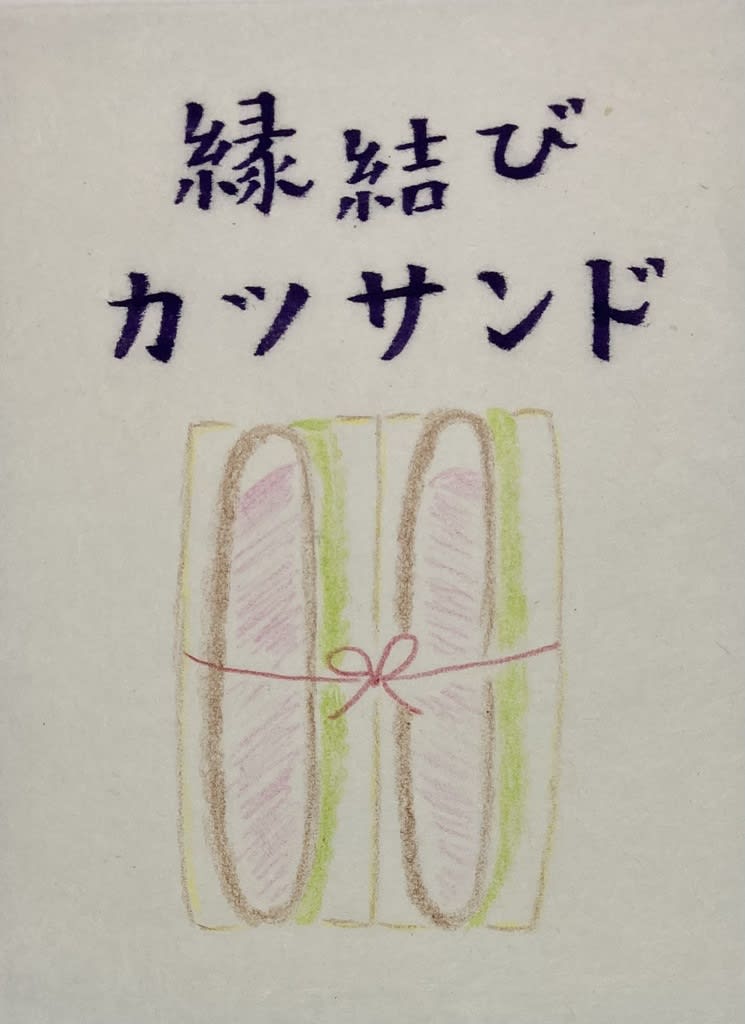 縁結び
カツサンド